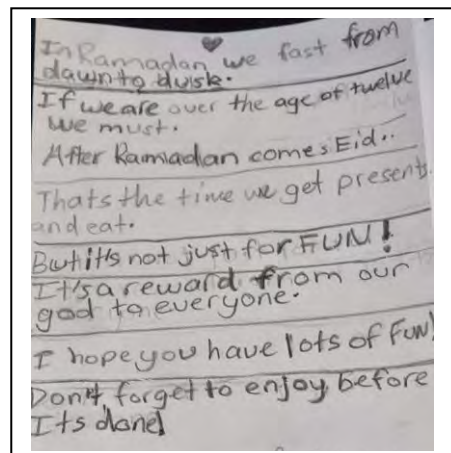 In Ramadan we fast from
dawn to dusk.
If we are over the age of twelve
we must.
After Ramadan comes Eid..
Thats the time we get presents
and eat.
But it's not just for FUN!
It's a reward from our
god to everyone.
I hope you have lots of fun!
Don't forget to enjoy before
Its done!